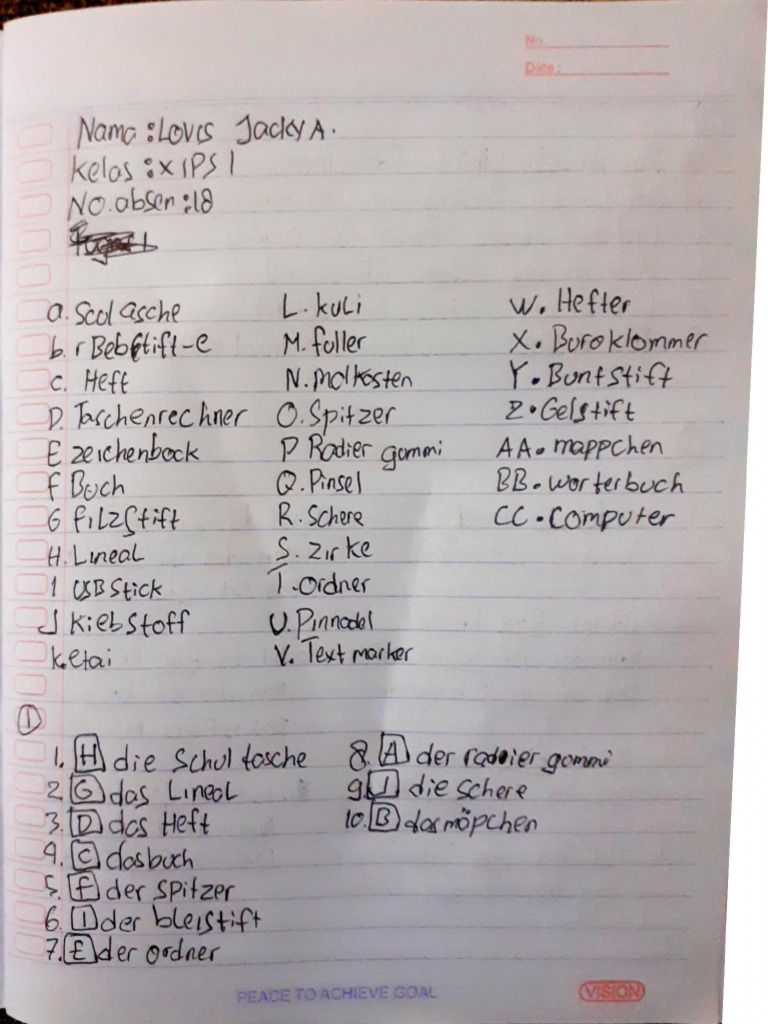 No
Date:
Nama : Lovis Jacky A.
Kelas : X IPS 1
NO. absen : 18
a. Scol asche
b. r Bebstift-e
c. Heft
D. Taschenrechner
E zeichenbock
f Buch
G filzstift
H. Lineal
I USB Stick
J Kiebstoff
k. etai
L. kuli
M. foller
N. malkasten
O. Spitzer
P Radier gommi
Q. Pinsel
R. Schere
S. zirke
T. ordner
U. Pinnadel
V. Text marker
W. Hefter
X. Buroklommer
Y. Buntstift
Z. Gelstift
AA. mappchen
BB. worterbuch
CC. computer
1
1. H die Schul tasche
2 G das Lineal
3. D das Heft
4. C das buch
5. f der spitzer
6. I der bleistift
7. E der ordner
8. A der radier gommi
9. J die schere
10. B das mäpchen
PEACE TO ACHIEVE GOAL
VISION